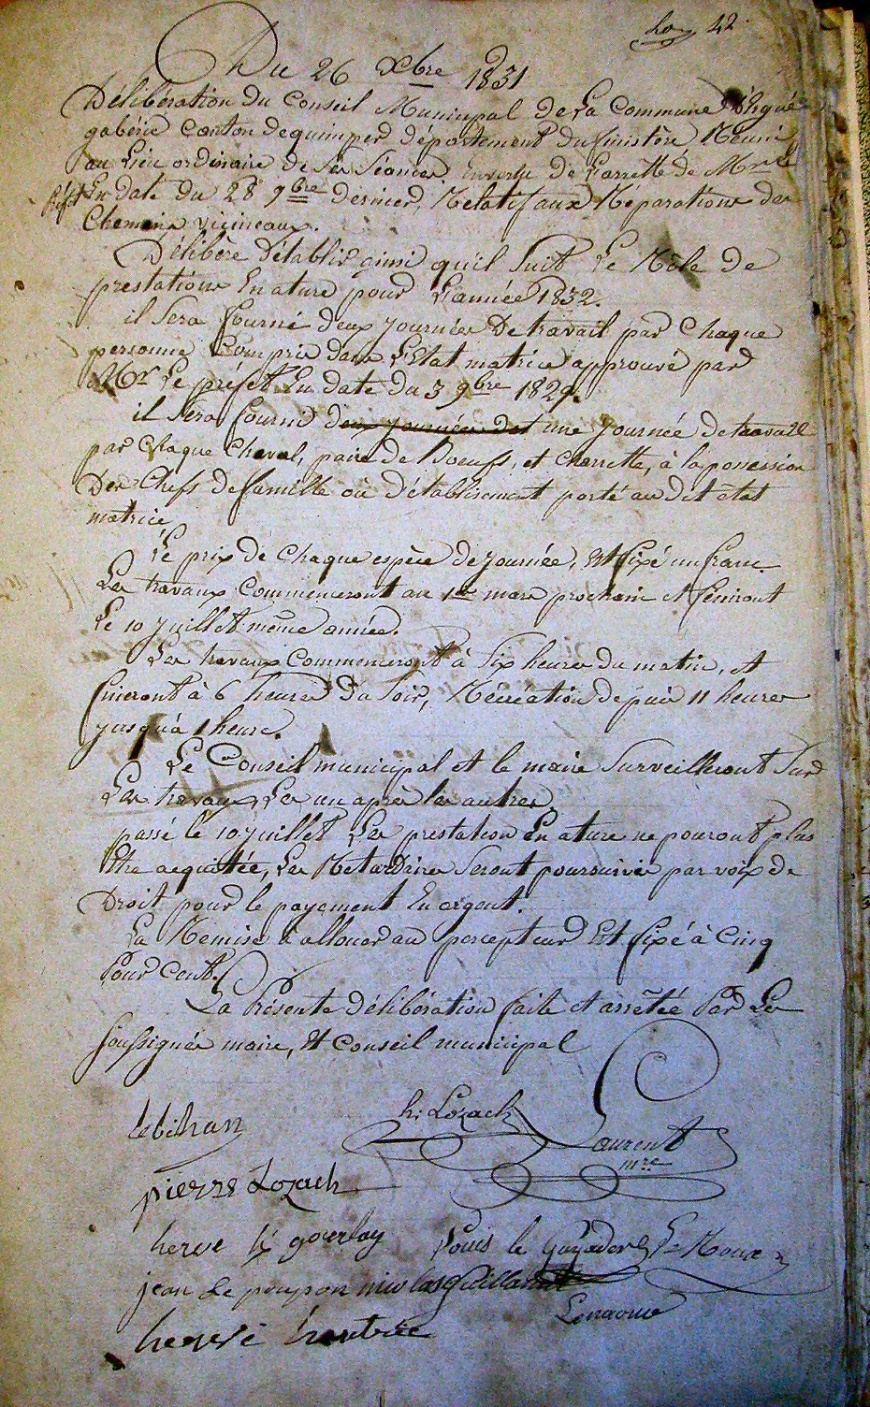 42
Du 26 xbre 1831
Délibération du Conseil Municipal de La Commune d'Ergué
gabéric Canton de quimper département du finistère Réuni
au Lieu ordinaire de Ses Séances En vertu de L'arretté de Mr le
Préft En date du 28 9bre dernier, Relatif aux Réparations des
Chemins vicineaux.
Délibère D'établir ainsi qu'il Suit Le Rôle de
prestations En nature pour L'année 1832.
il Sera fourni deux journées De travail par Chaque
personne Compris dans L'Etat matrice approuvé par
Mr Le préfet En date du 3 9bre 1829.
il Sera fournid deux journées det une journée de travail
par Chaque Cheval, paire de Boeufs, et Charrette, à la possession
Des Chefs de famille ou D'établisement porté au dit état
matrice.
Le prix de Chaque espèce de journée, Est fixé un franc.
Les travaux Commenceront au 1er mars prochain et féniront
Le 10 juillet même année.
Les travaux Commenceront à Six heures du matin, et
finiront à 6 heures Du Soir, Récréation depuis 11 heures
jusqu'à 1 heure.
Le Conseil municipal et le maire Surveilleront Sur
Les travaux, Les un après les autres,
passé le 10 juillet Les prestation En nature ne pouront plus
être acquitée, Les Retardaires Seront poursuivis par voix de
Droit pour le payement En argent.
La Remise à allouer au percepteur Est fixé à Cinq
Pour Cent.
La Présente délibération faite et arrêtée Par Les
Soussignés maire, Et Conseil municipal
lebihan h: Lozach Laurent
mre
pierre Lozach
herve le gourlay Louis le Guyader Le Roux
jean Le poupon nicolas Guillamet
Lenaour
hervé